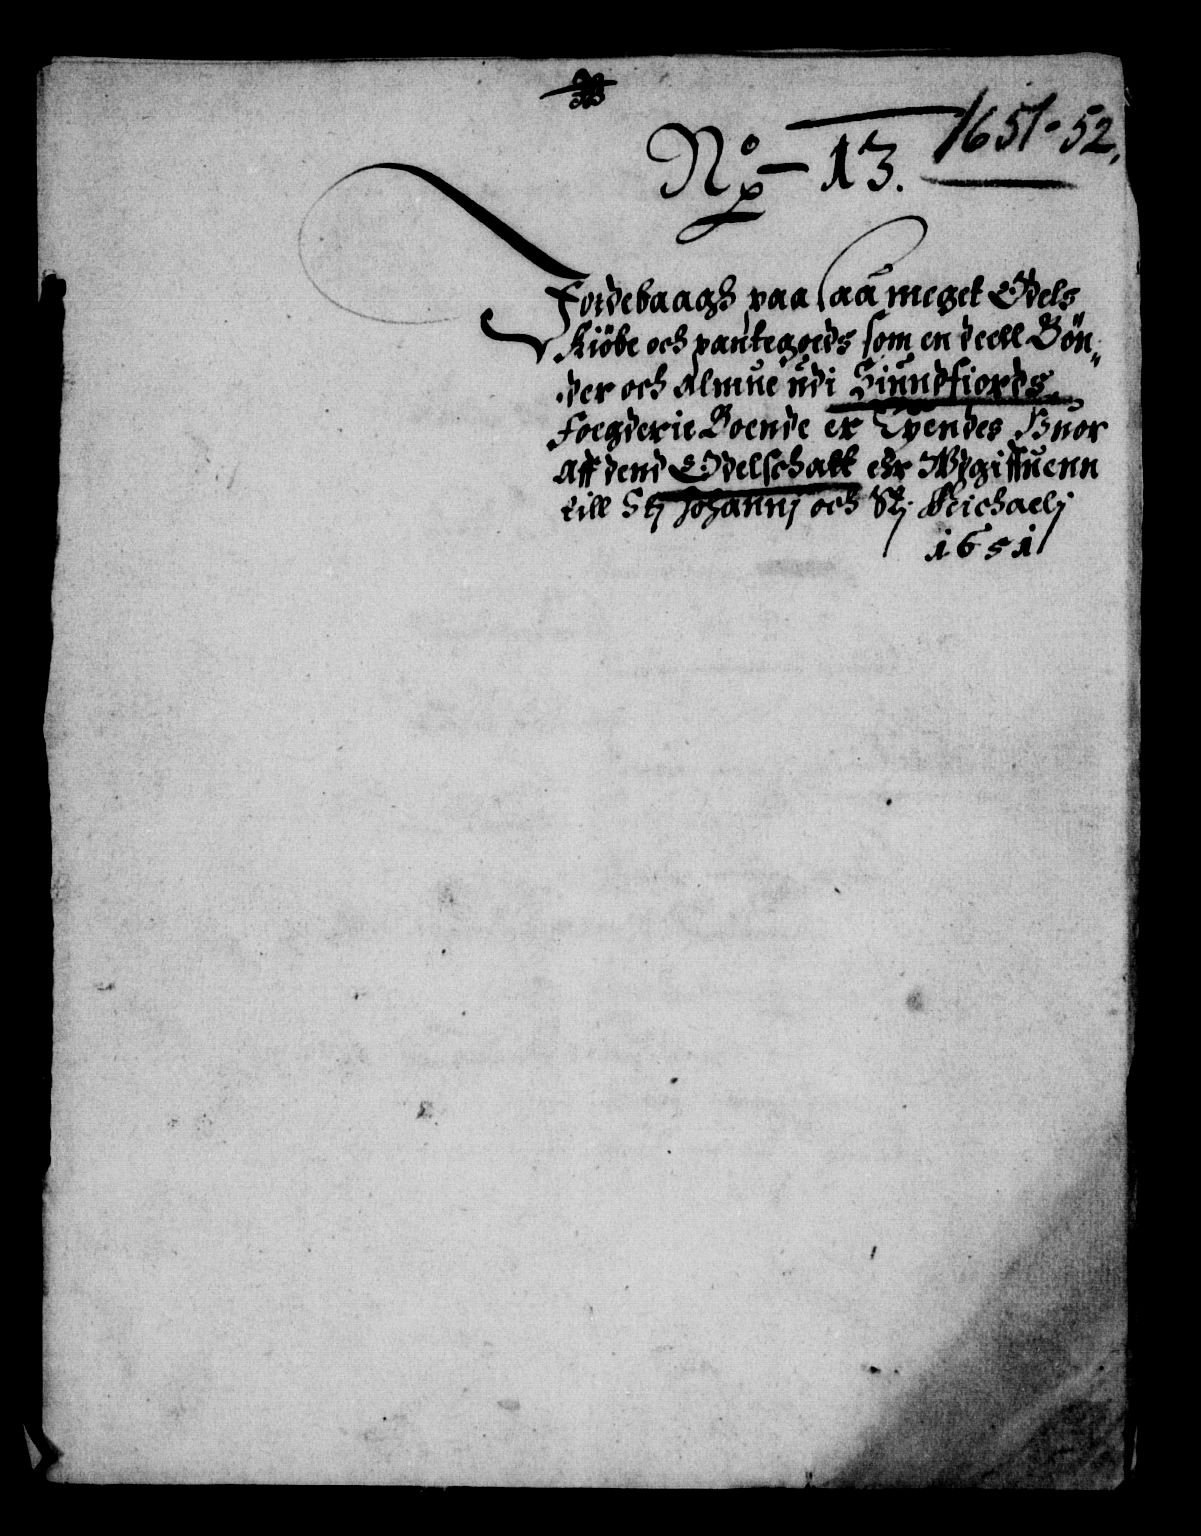 No 13. 1651-52.
Jordebaagh paa saa meget Odels
Kiöbe och pantegoeds som en deell Bön-
der och Almue udi Siundfiords
Foegderie Boende er Eyendes Huor
Aff dend Odelschatt ehr Udgiffuenn
till St: Johannj och St: Michaelj
1651